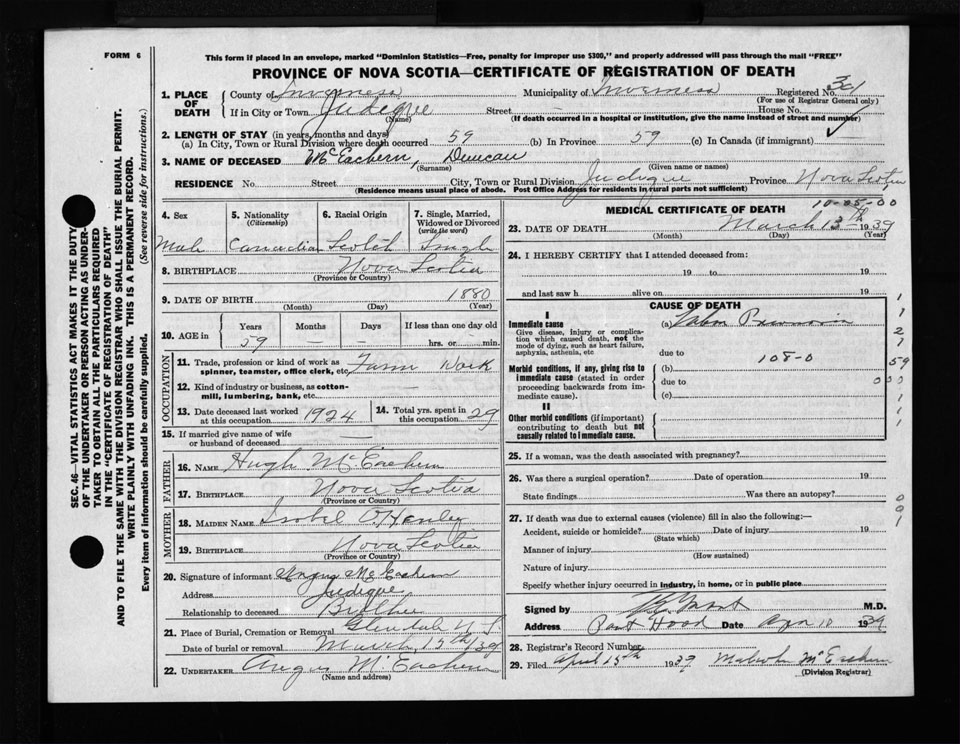 FORM 6
This form if placed in an envelope, marked "Dominion Statistics—Free, penalty for improper use $300," and properly addressed will pass through the mail "FREE"
PROVINCE OF NOVA SCOTIA—CERTIFICATE OF REGISTRATION OF DEATH
SEC. 46—VITAL STATISTICS ACT MAKES IT THE DUTY
OF THE UNDERTAKER OR PERSON ACTING AS UNDER-
TAKER TO OBTAIN ALL THE PARTICULARS REQUIRED
IN THE "CERTIFICATE OF REGISTRATION OF DEATH"
AND TO FILE THE SAME WITH THE DIVISION REGISTRAR WHO SHALL ISSUE THE BURIAL PERMIT.
WRITE PLAINLY WITH UNFADING INK. THIS IS A PERMANENT RECORD.
Every item of information should be carefully supplied. (See reverse side for instructions.)
1. PLACE OF DEATH
County of Inverness Municipality of Inverness Registered No.
(For use of Registrar General only)
If in City or Town Judique Street House No.
(Name) (If death occurred in a hospital or institution, give the name instead of street and number)
2. LENGTH OF STAY (in years, months and days)
(a) In City, Town or Rural Division where death occurred 59 (b) In Province 59 (c) In Canada (if immigrant)
3. NAME OF DECEASED McEachern, Duncan
(Surname) (Given name or names)
RESIDENCE No. Street City, Town or Rural Division Judique Province Nova Scotia
(Residence means usual place of abode. Post Office Address for residents in rural parts not sufficient)
4. Sex Male
5. Nationality (Citizenship) Canadian
6. Racial Origin Scotch
7. Single, Married, Widowed or Divorced (write the word) Single
8. BIRTHPLACE Nova Scotia
(Province or Country)
9. DATE OF BIRTH 1880
(Month) (Day) (Year)
10. AGE in Years Months Days If less than one day old
59 — — hrs. or min.
OCCUPATION
11. Trade, profession or kind of work as spinner, teamster, office clerk, etc. Farm Work
12. Kind of industry or business, as cotton-mill, lumbering, bank, etc.
13. Date deceased last worked at this occupation 1924
14. Total yrs. spent in this occupation 29
15. If married give name of wife or husband of deceased —
FATHER
16. NAME Hugh McEachern
17. BIRTHPLACE Nova Scotia
(Province or Country)
MOTHER
18. MAIDEN NAME Isobel O'Henley
19. BIRTHPLACE Nova Scotia
(Province or Country)
20. Signature of informant Angus McEachern
Address Judique
Relationship to deceased Brother
21. Place of Burial, Cremation or Removal Glendale N S
Date of burial or removal March, 15th/39
22. UNDERTAKER Angus McEachern
(Name and address)
MEDICAL CERTIFICATE OF DEATH
10-05-00
23. DATE OF DEATH March 13th 1939
(Month) (Day) (Year)
24. I HEREBY CERTIFY that I attended deceased from:
19 to 19
and last saw h alive on 19
CAUSE OF DEATH
I
Immediate cause
Give disease, injury, or complication which caused death, not the mode of dying, such as heart failure, asphyxia, asthenia, etc
(a) Lobar Pneumonia
due to
Morbid conditions, if any, giving rise to immediate cause (stated in order proceeding backwards from immediate cause).
(b) 108-0
due to
(c)
II
Other morbid conditions (if important) contributing to death but not causally related to immediate cause.
25. If a woman, was the death associated with pregnancy?
26. Was there a surgical operation? Date of operation 19
State findings Was there an autopsy?
27. If death was due to external causes (violence) fill in also the following:—
Accident, suicide or homicide? Date of injury 19
(State which)
Manner of injury
(How sustained)
Nature of injury
Specify whether injury occurred in industry, in home, or in public place
Signed by M.D.
Address Port Hood Date Apr 18 1939
28. Registrar's Record Number
29. Filed April 15th 1939 Malcolm McEachern
(Division Registrar)